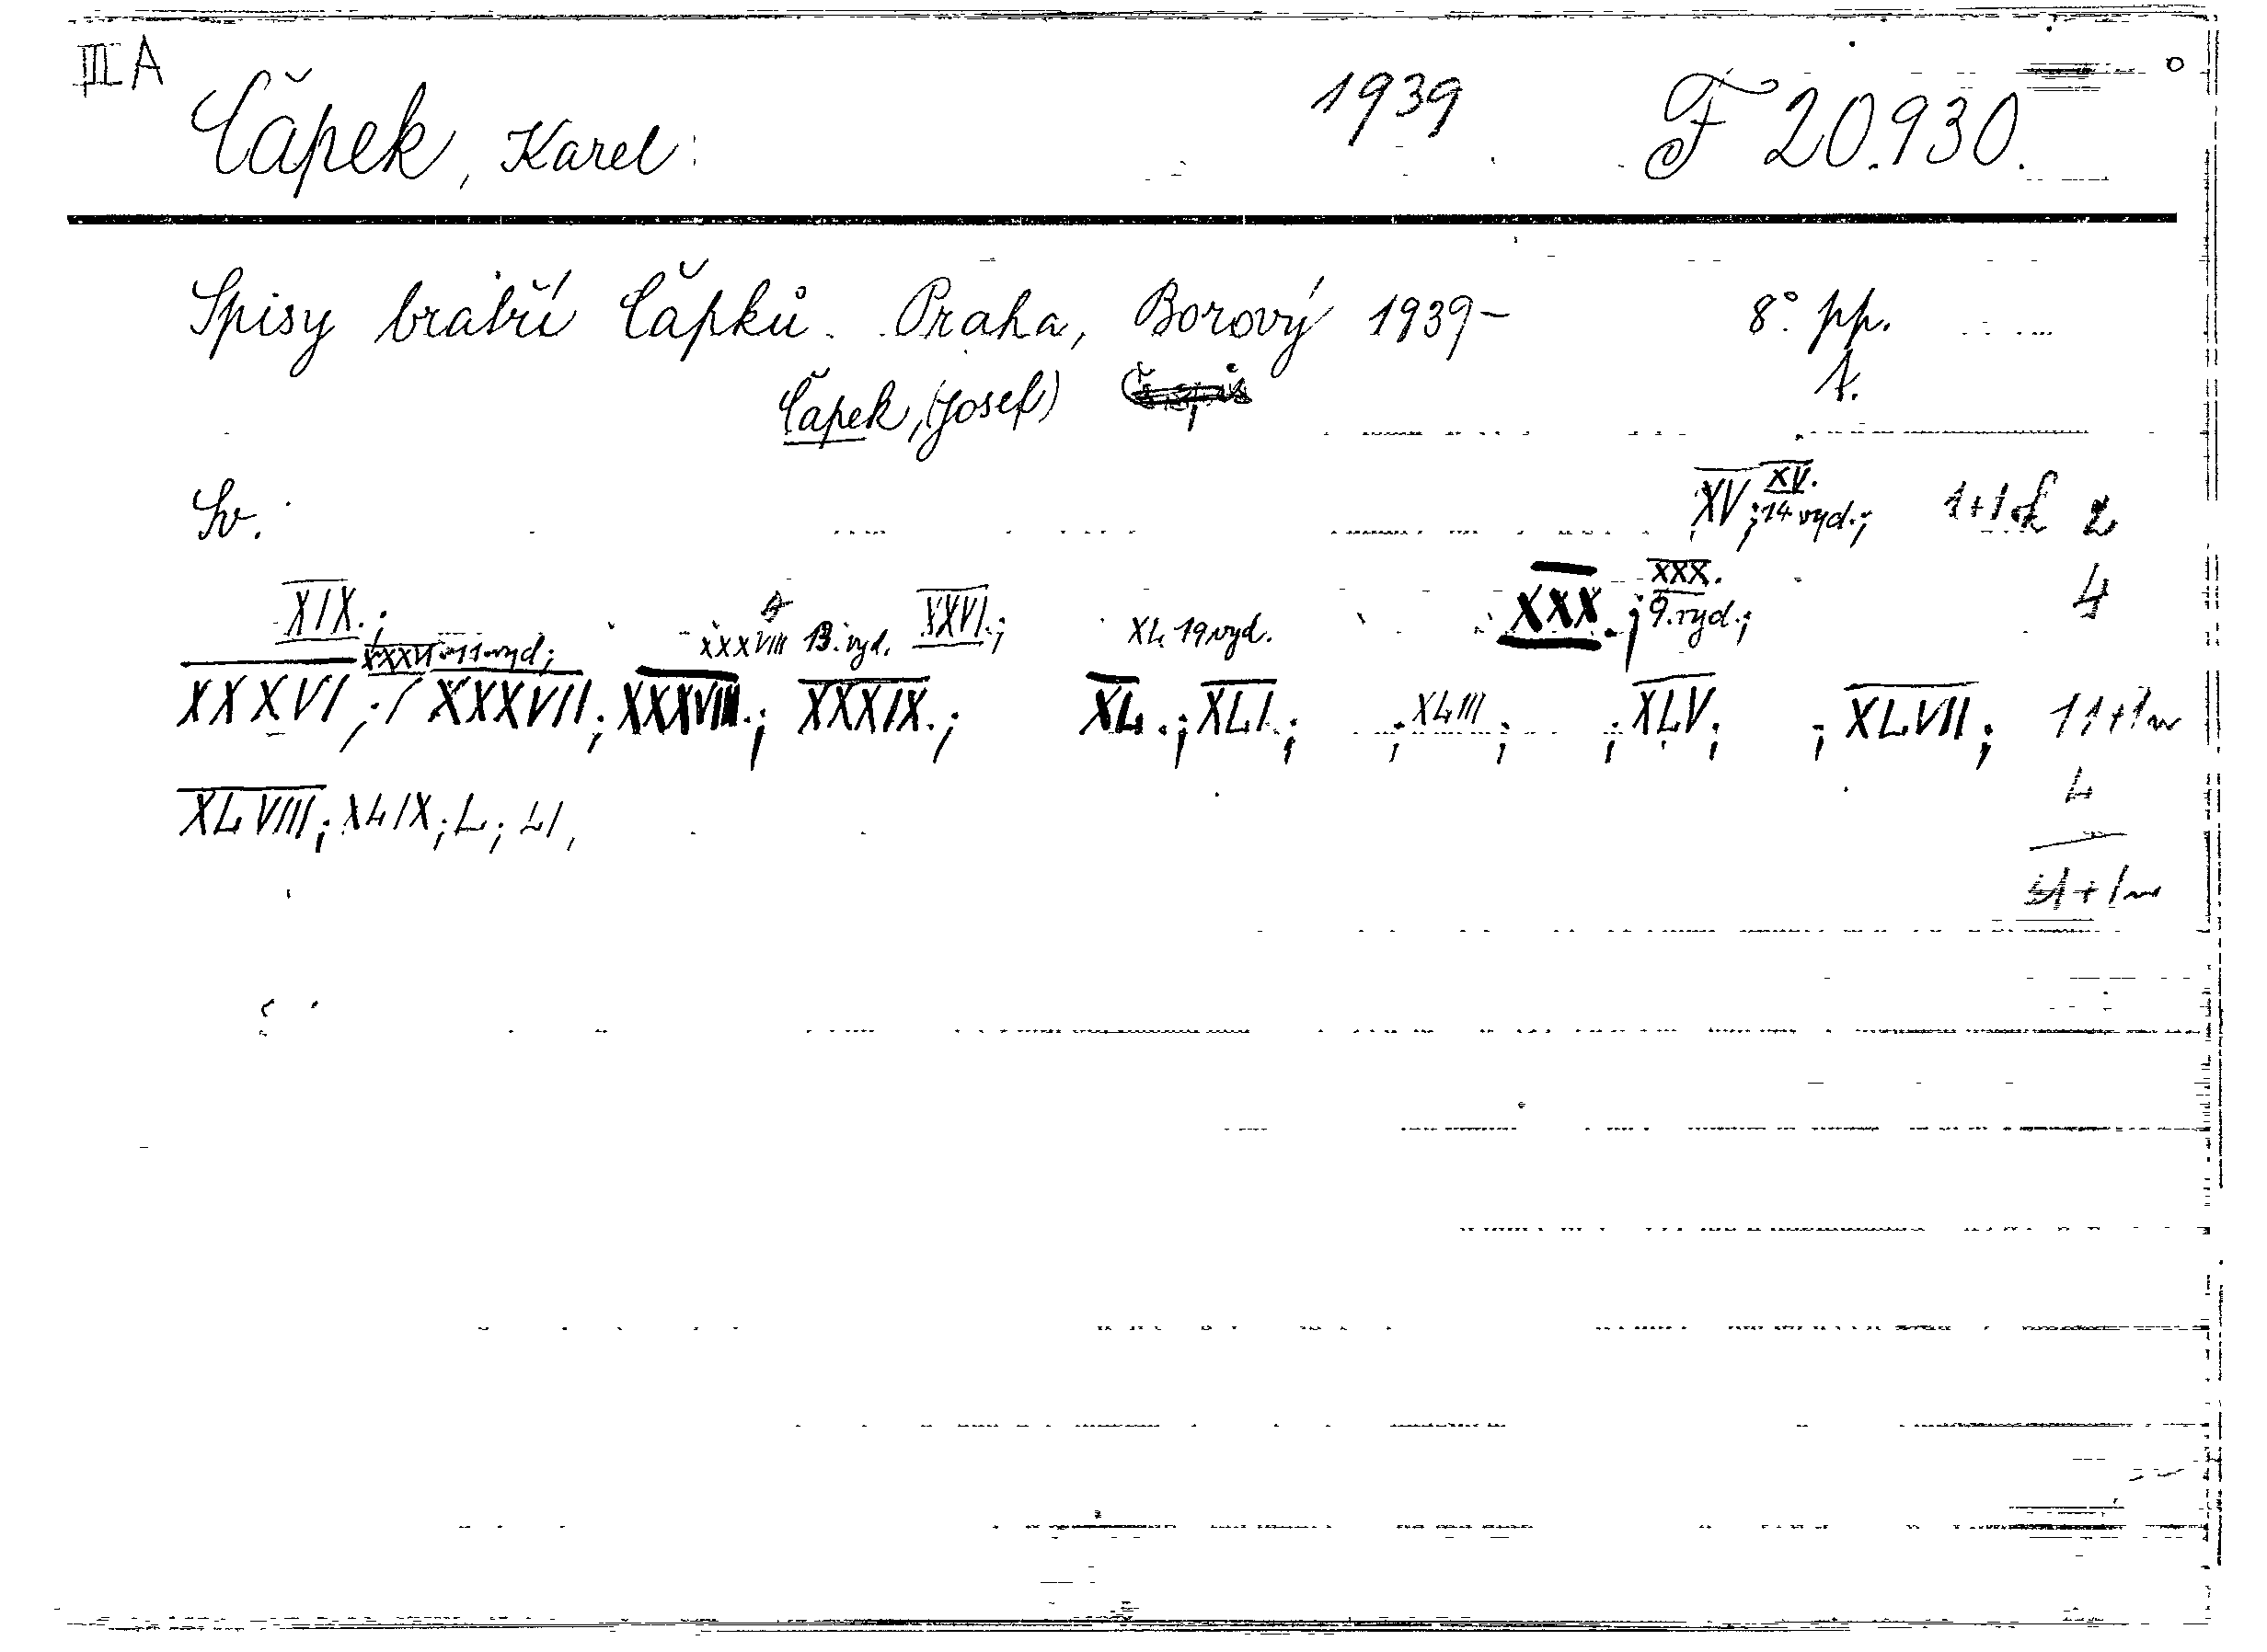 III A
Čapek, Karel: 1939 F 20.930.
Spisy bratří Čapků. Praha, Borový 1939- 8° pp.
Čapek, (Josef) 1.
Sv. XV; XV. 14 vyd.; 1+1 2
XIX.; XXXVIII 13. vyd. XXVI.; XL 19 vyd. XXX.; XXX. 9. vyd.; 4
XXXVI; XXXVI 11 vyd; XXXVII; XXXVIII.; XXXIX.; XL.; XLI.; ; XLIII; ; XLV; ; XLVII; 11+1
XLVIII; XLIX; L; LI, 4